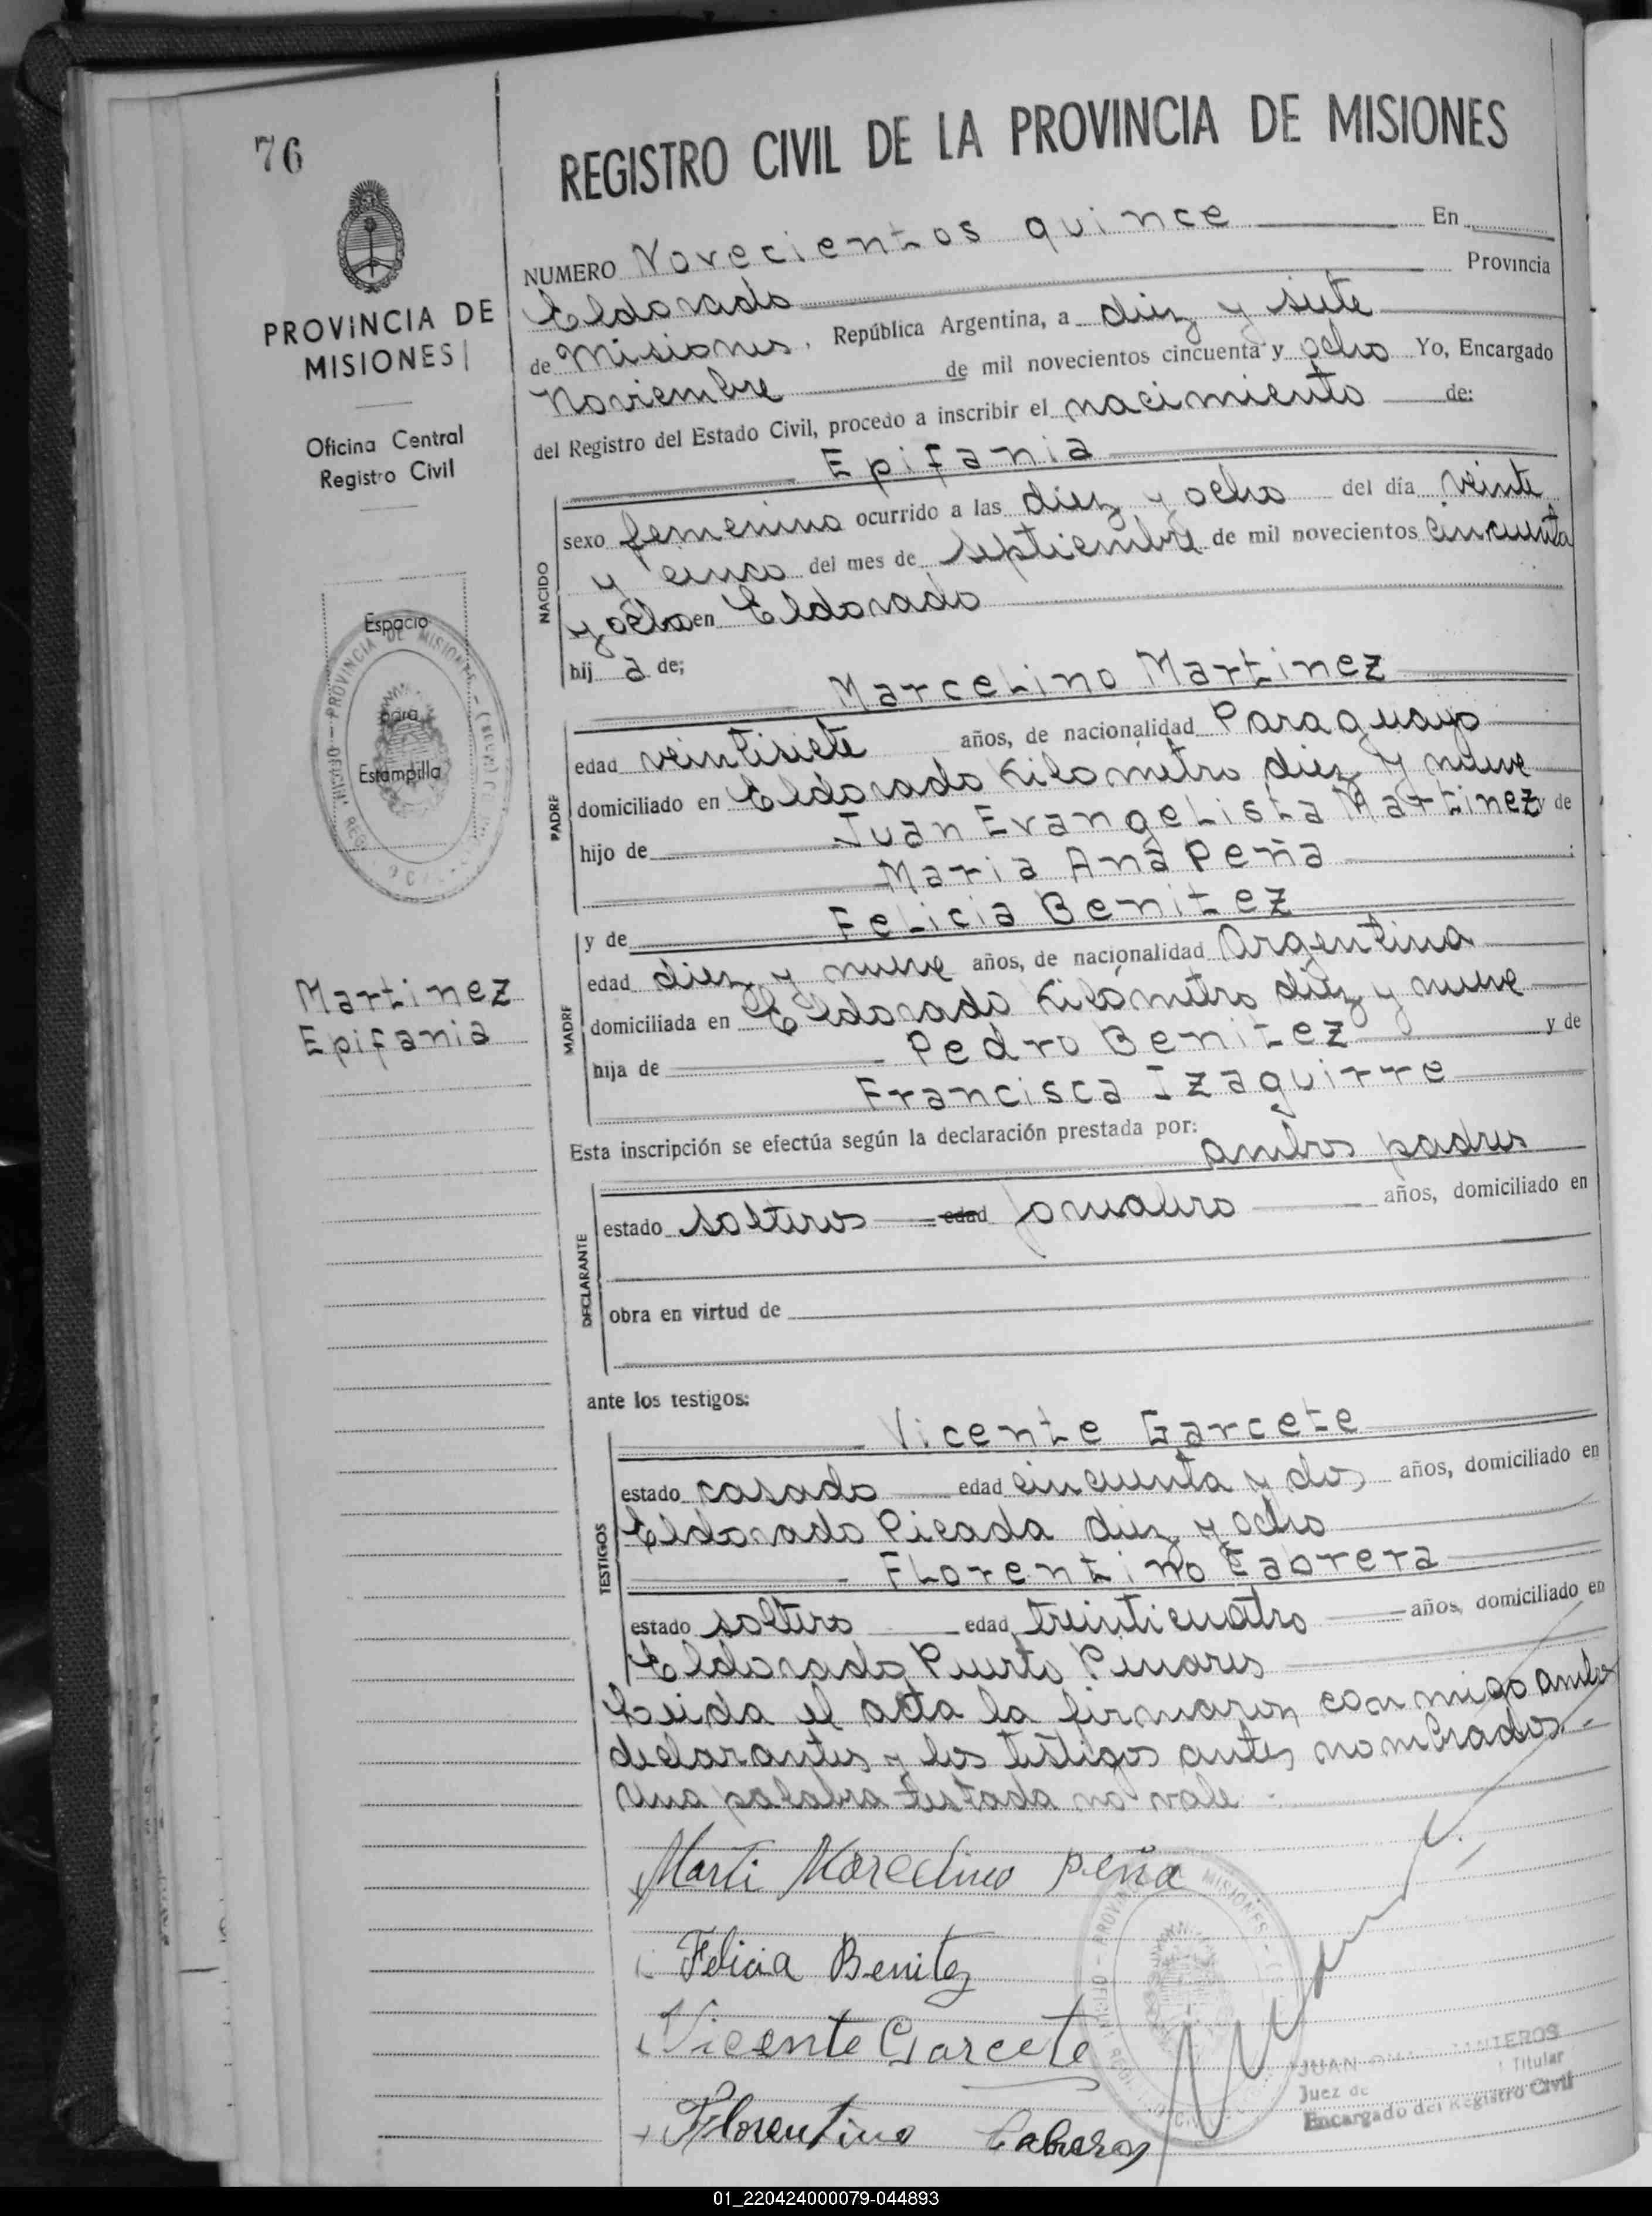 76
REGISTRO CIVIL DE LA PROVINCIA DE MISIONES
PROVINCIA DE
MISIONES
Oficina Central
Registro Civil
Espacio
para
Estampilla
PROVINCIA DE MISIONES
Martinez
Epifania
NUMERO Novecientos quince En
Eldorado Provincia
de Misiones, República Argentina, a diez y siete
Noviembre de mil novecientos cincuenta y ocho Yo, Encargado
del Registro del Estado Civil, procedo a inscribir el nacimiento de:
Epifania
NACIDO
sexo femenino ocurrido a las diez y ocho del día veinte
y cinco del mes de septiembre de mil novecientos cincuenta
y ocho en Eldorado
hij a de;
Marcelino Martinez
PADRE
edad veintisiete años, de nacionalidad Paraguayo
domiciliado en Eldorado Kilometro diez y nueve
hijo de Juan Evangelista Martinez y de
Maria Ana Peña
y de Felicia Benitez
MADRE
edad diez y nueve años, de nacionalidad Argentina
domiciliada en Eldorado Kilómetro diez y nueve
hija de Pedro Benitez y de
Francisca Izaguirre
Esta inscripción se efectúa según la declaración prestada por:
ambos padres
DECLARANTE
estado solteros edad jornalero años, domiciliado en
obra en virtud de
ante los testigos:
Vicente Garcete
TESTIGOS
estado casado edad cincuenta y dos años, domiciliado en
Eldorado Picada diez y ocho
Florentino Cabrera
estado soltero edad treinticuatro años, domiciliado en
Eldorado Puerto Pinares
Leida el acta la firmaron conmigo ambos
declarantes y los testigos antes nombrados.-
Una palabra testada no vale
Marti Marcelino Peña
Felicia Benitez
Vicente Garcete
Florentino Cabrera
MISIONES
JUAN
Titular
Juez de
Encargado del Registro Civil
01_220424000079-044893